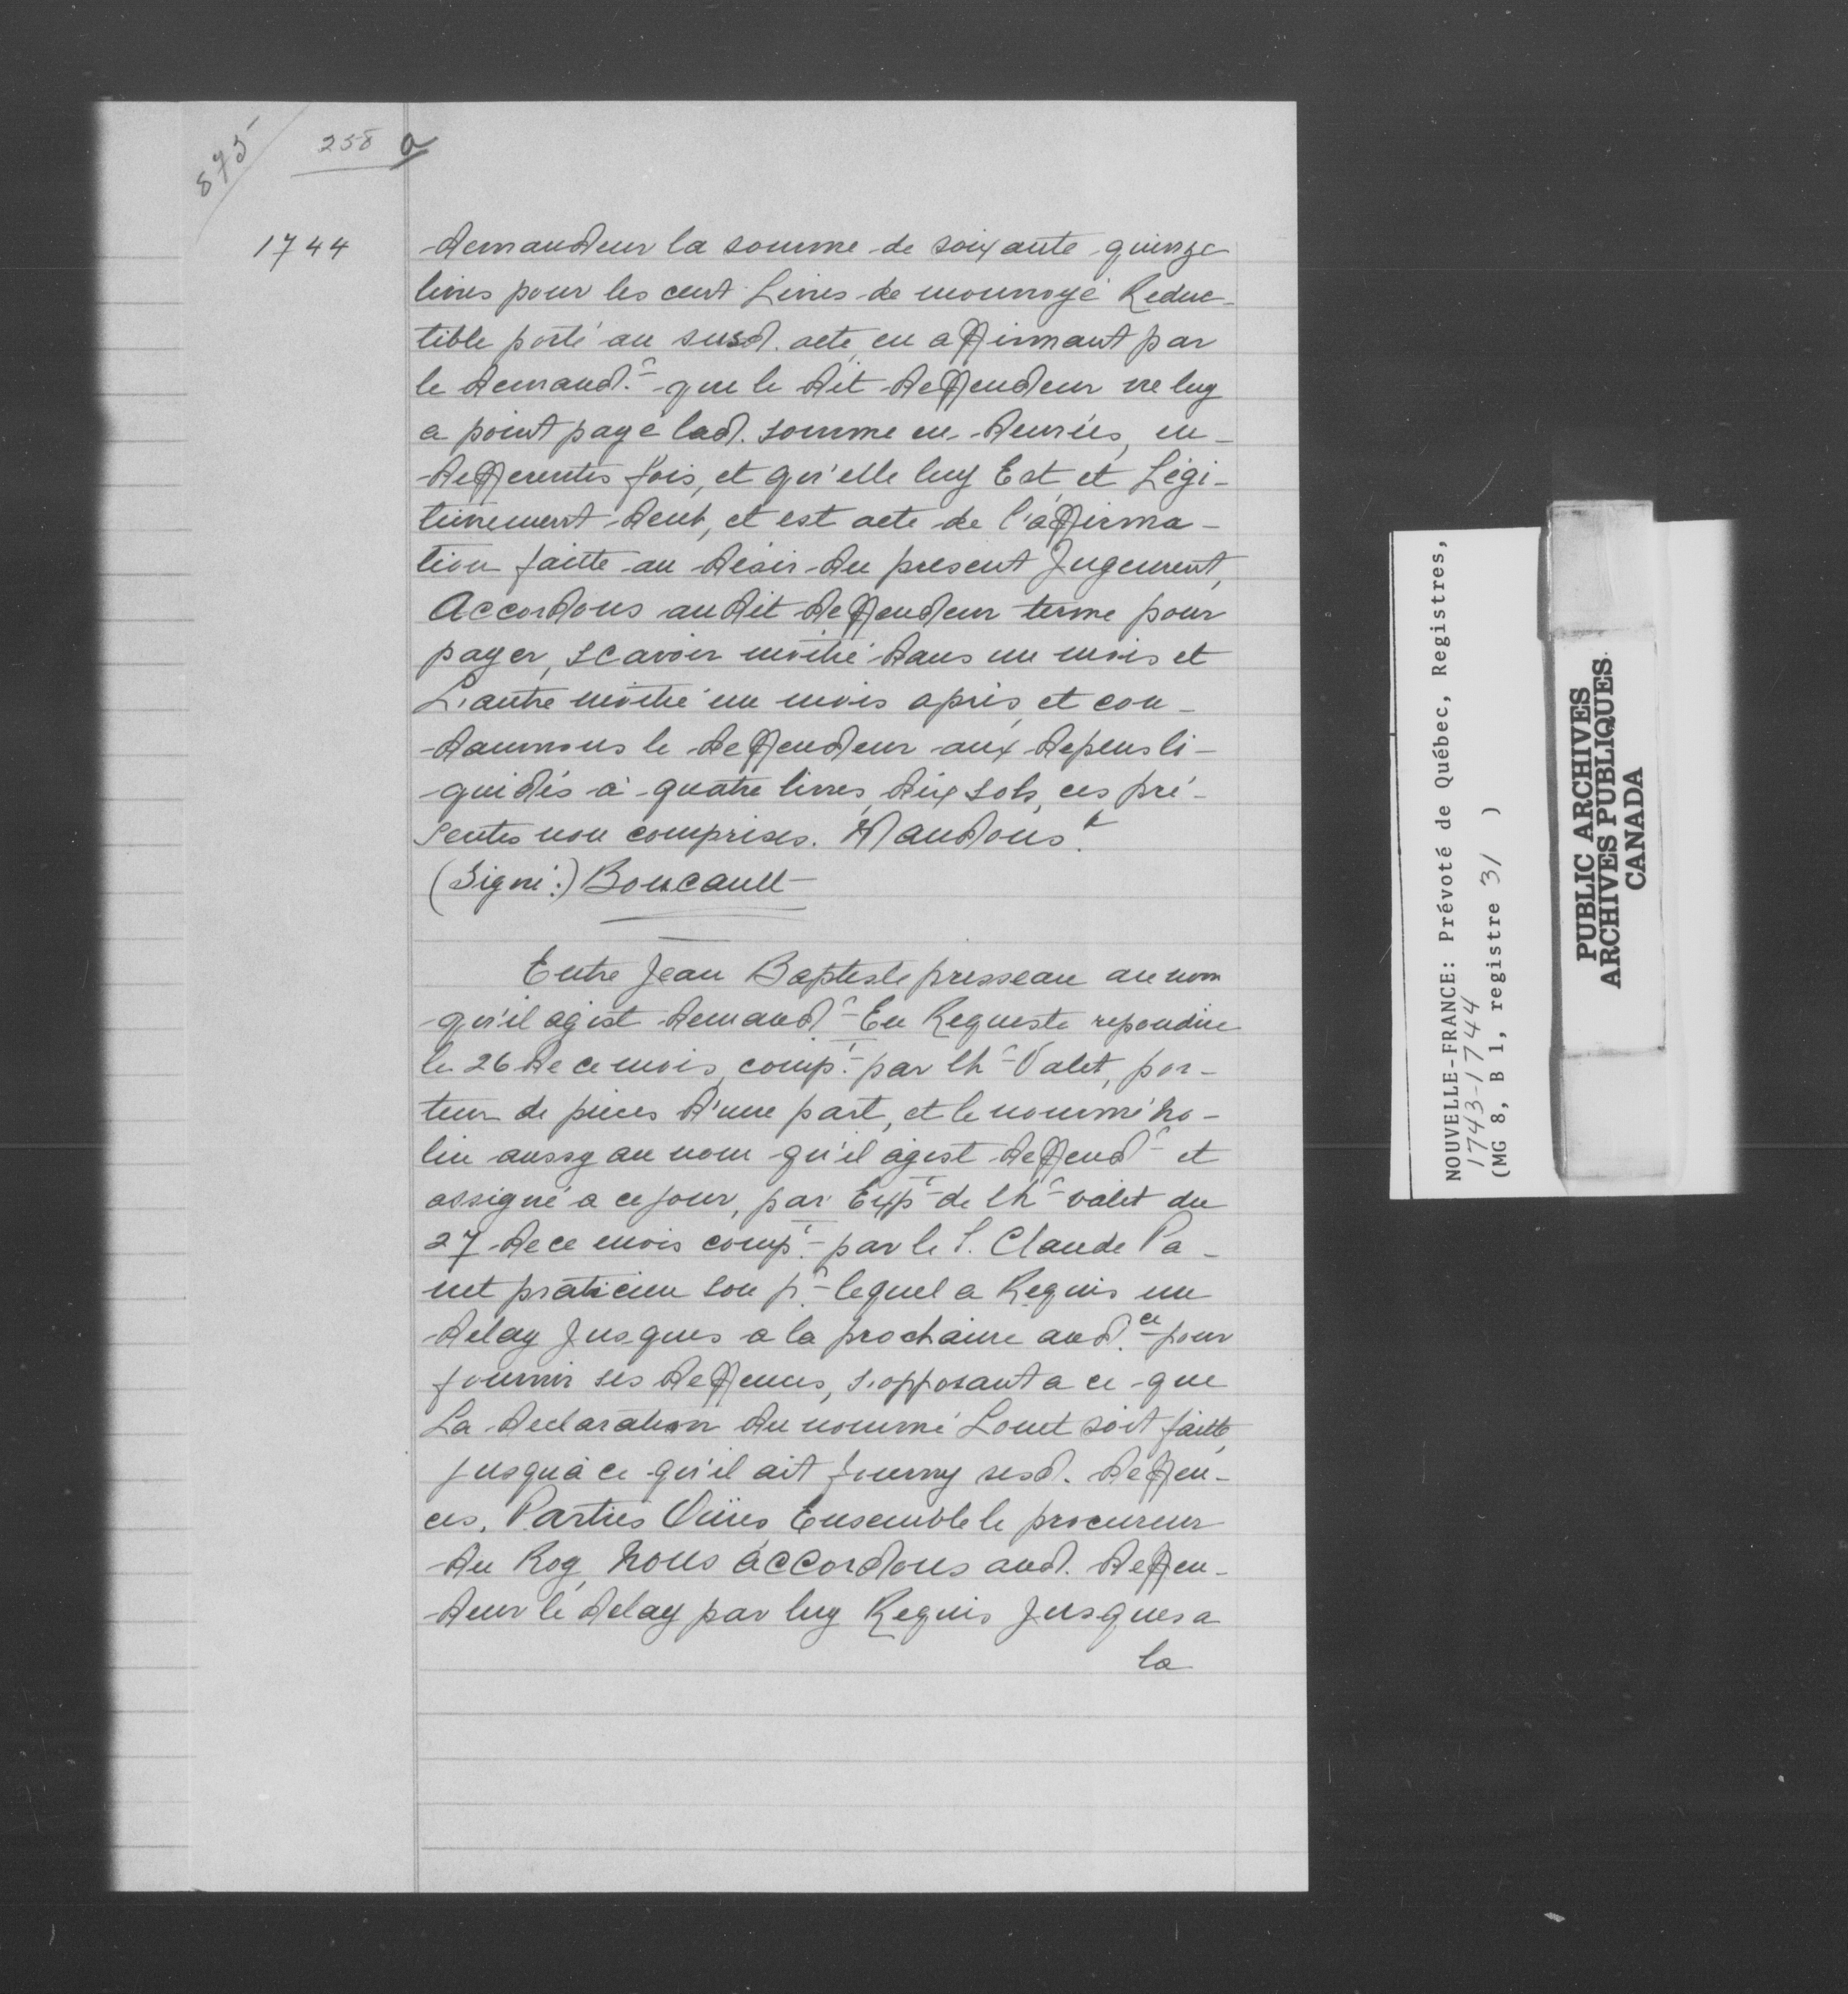 875
258 a
1744
demandeur la somme de soixante quinze
livres pour les cent Livres de monnoyé Reduc-
tible porté au susd. acte, en affirmant par
le demand.r que le dit deffendeur ne luy
a point payé lad. somme en denrées, en
defferentes fois, et qu'elle luy Est et Légi-
timement deub, et est acte de l'affirma-
tion faitte au désir du present Jugement,
Accordons audit deffendeur terme pour
payer, scavoir moitié dans un mois et
L'autre moitié un mois après, et con-
damnons le deffendeur aux depens li-
quidés à quatre livres, dix sols, ces pré-
sentes non comprises. Mandons &
(Signé:) Boucault
Entre Jean Baptiste prisseau au nom
qu'il agist demand.r En Requeste repondüe
le 26 de ce mois, comp.t par lh.r Valet, por-
teur de pieces d'une part, et le nommé no-
lin aussy au nom qu'il agist deffend.r et
assigné a ce jour, par Exp.t de lh.r valet du
27 de ce mois comp.t par le S. Claude Pa-
net praticien son p.r lequel a Requis un
delay Jusques a la prochaine aud.ce pour
fournir ses deffences, s'opposant a ce que
La declaration du nommé Louet soit faitte,
jusqu'à ce qu'il ait fourny sesd. deffen-
ces, Parties Oüies Ensemble le procureur
du Roy, nous accordons aud. deffen-
deur le delay par luy Requis Jusques a
la
NOUVELLE-FRANCE: Prévoté de Québec, Registres,
1743-1744
(MG 8, B 1, registre 31 )
PUBLIC ARCHIVES
ARCHIVES PUBLIQUES
CANADA